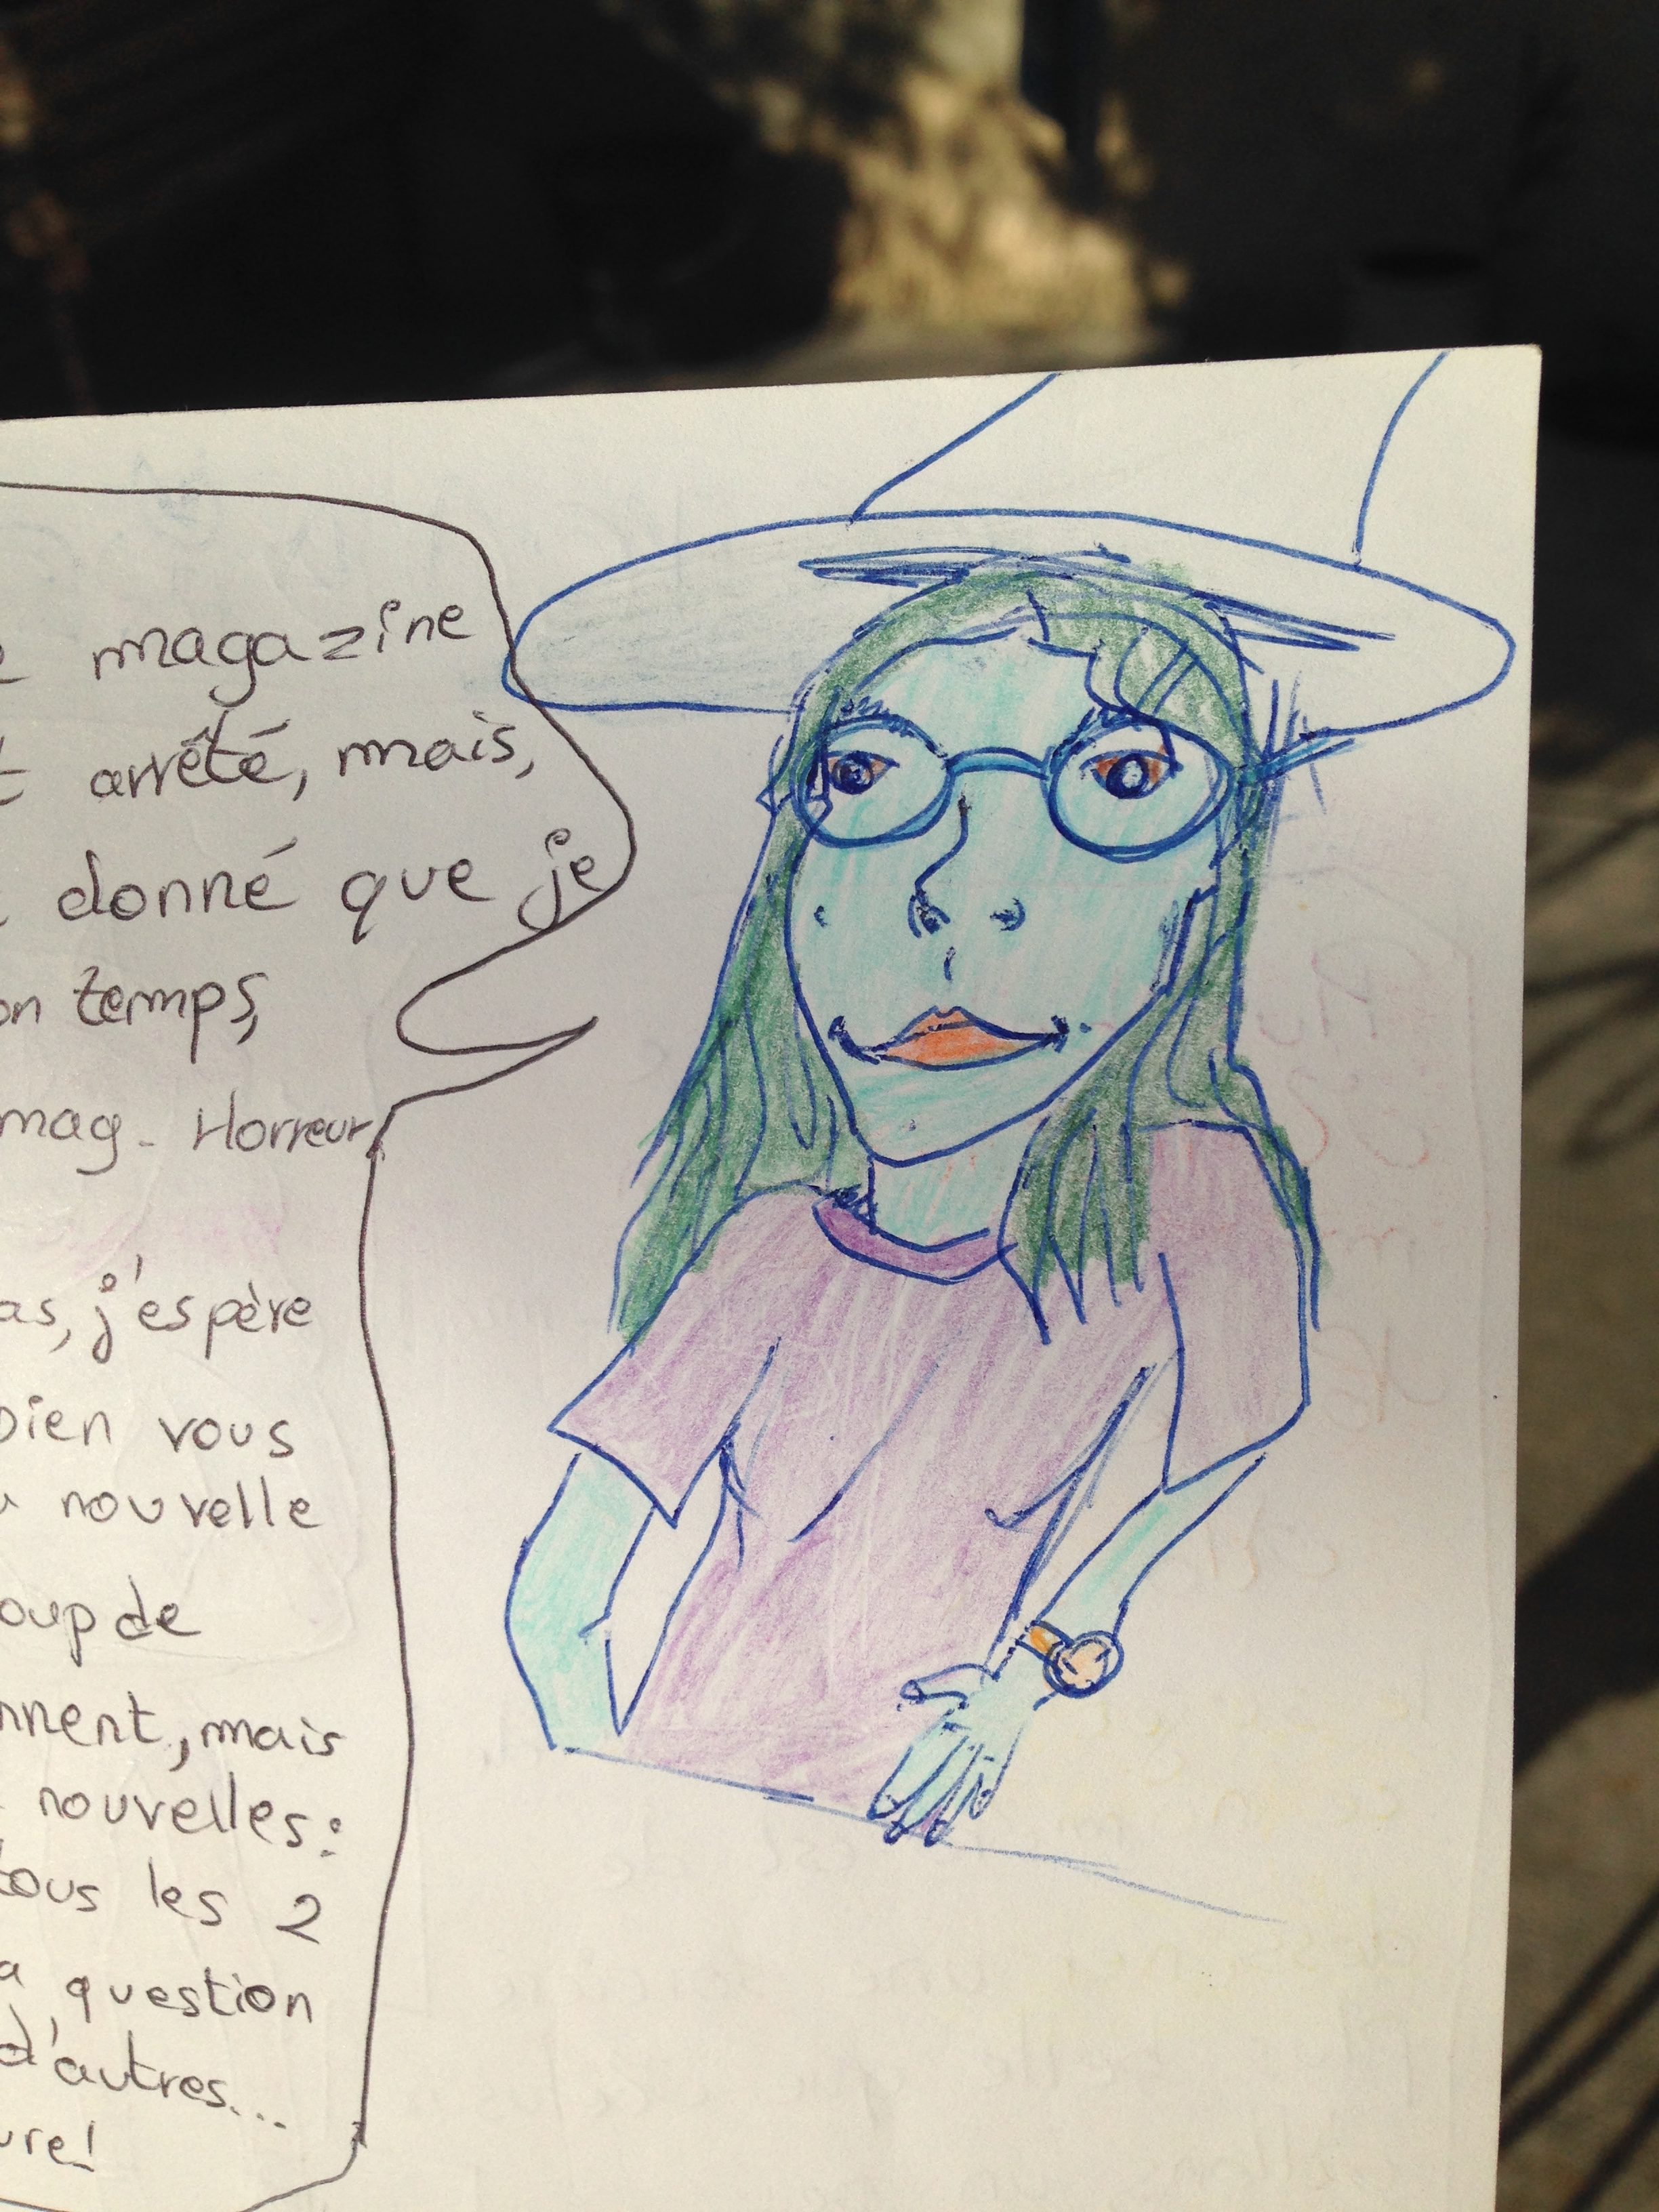 magazine
arrêté, mais,
donné que je
temps,
mag. Horreur,
j'espère
vous
nouvelle
de
mais
nouvelles:
les 2
question
d'autres...